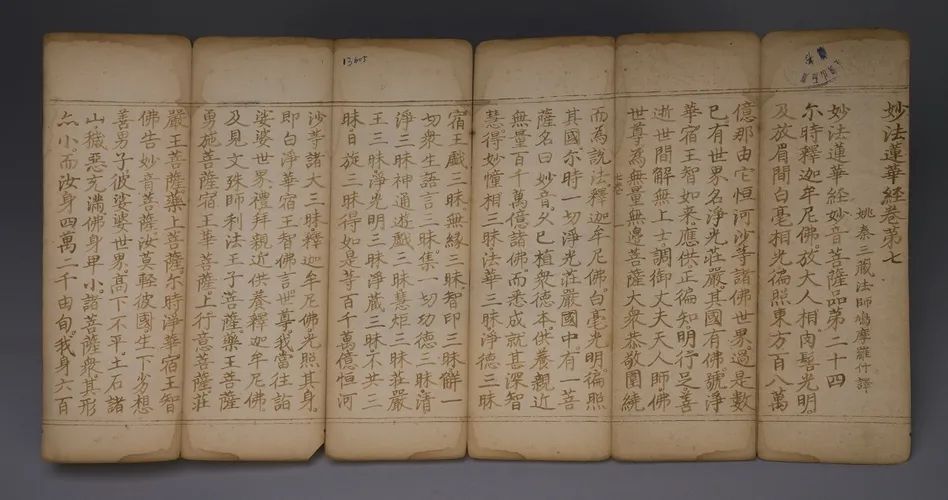 妙法蓮華經卷第七
姚秦三藏法師鳩摩羅什譯
妙法蓮華經妙音菩薩品第二十四
尒時釋迦牟尼佛放大人相肉髻光明
及放眉間白毫相光徧照東方百八萬
億那由它恒河沙等諸佛世界過是數
已有世界名淨光莊嚴其國有佛號淨
華宿王智如來應供正徧知明行足善
逝世間解無上士調御丈夫天人師佛
世尊為無量無邊菩薩大衆恭敬圍繞
七卷
而為說法釋迦牟尼佛白毫光明徧照
其國尒時一切淨光莊嚴國中有一菩
薩名曰妙音久已植衆德本供養親近
無量百千萬億諸佛而悉成就甚深智
慧得妙幢相三昧法華三昧淨德三昧
宿王戲三昧無緣三昧智印三昧解一
切衆生語言三昧集一切功德三昧清
淨三昧神通遊戲三昧慧炬三昧莊嚴
王三昧淨光明三昧淨藏三昧不共三
昧日旋三昧得如是等百千萬億恒河
13605
沙等諸大三昧釋迦牟尼佛光照其身
即白淨華宿王智佛言世尊我當往詣
娑婆世界禮拜親近供養釋迦牟尼佛
及見文殊師利法王子菩薩藥王菩薩
勇施菩薩宿王華菩薩上行意菩薩莊
嚴王菩薩藥上菩薩尒時淨華宿王智
佛告妙音菩薩汝莫輕彼國生下劣想
善男子彼娑婆世界高下不平土石諸
山穢惡充滿佛身卑小諸菩薩衆其形
亦小而汝身四萬二千由旬我身六百